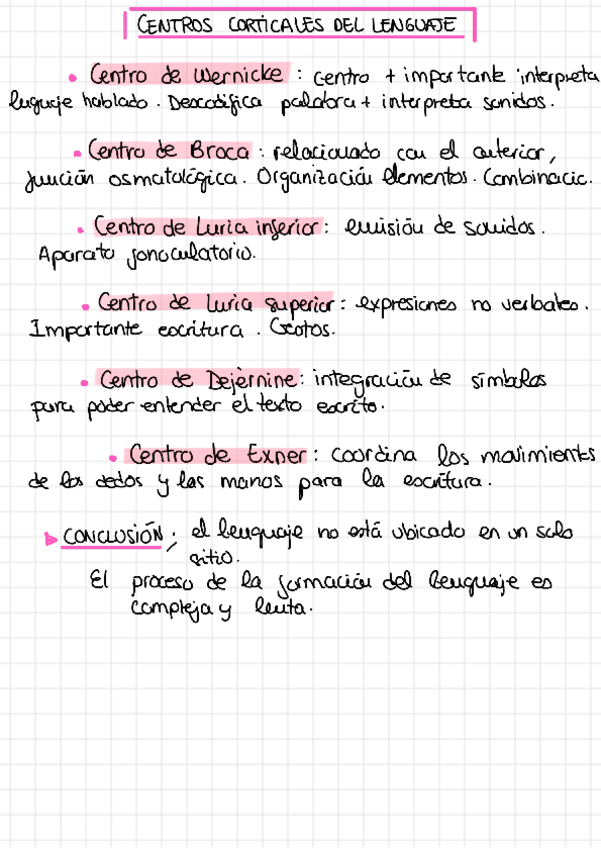 CENTROS CORTICALES DEL LENGUAJE
• Centro de Wernicke : centro + importante interpreta
lenguaje hablado. Descodifica palabra + interpreta sonidos.
• Centro de Broca : relacionado con el anterior,
función osmatológica. Organización elementos. Combinació.
• Centro de Luria inferior : emisión de sonidos.
Aparato fonoculatorio.
• Centro de Luria superior : expresiones no verbales.
Importante escritura. Gestos.
• Centro de Dejernine : integración de símbolos
para poder entender el texto escrito.
• Centro de Exner : coordina los movimients
de los dedos y las manos para la escritura.
▶ CONCLUSIÓN : el lenguaje no está ubicado en un solo
sitio.
El proceso de la formación del lenguaje es
compleja y lenta.